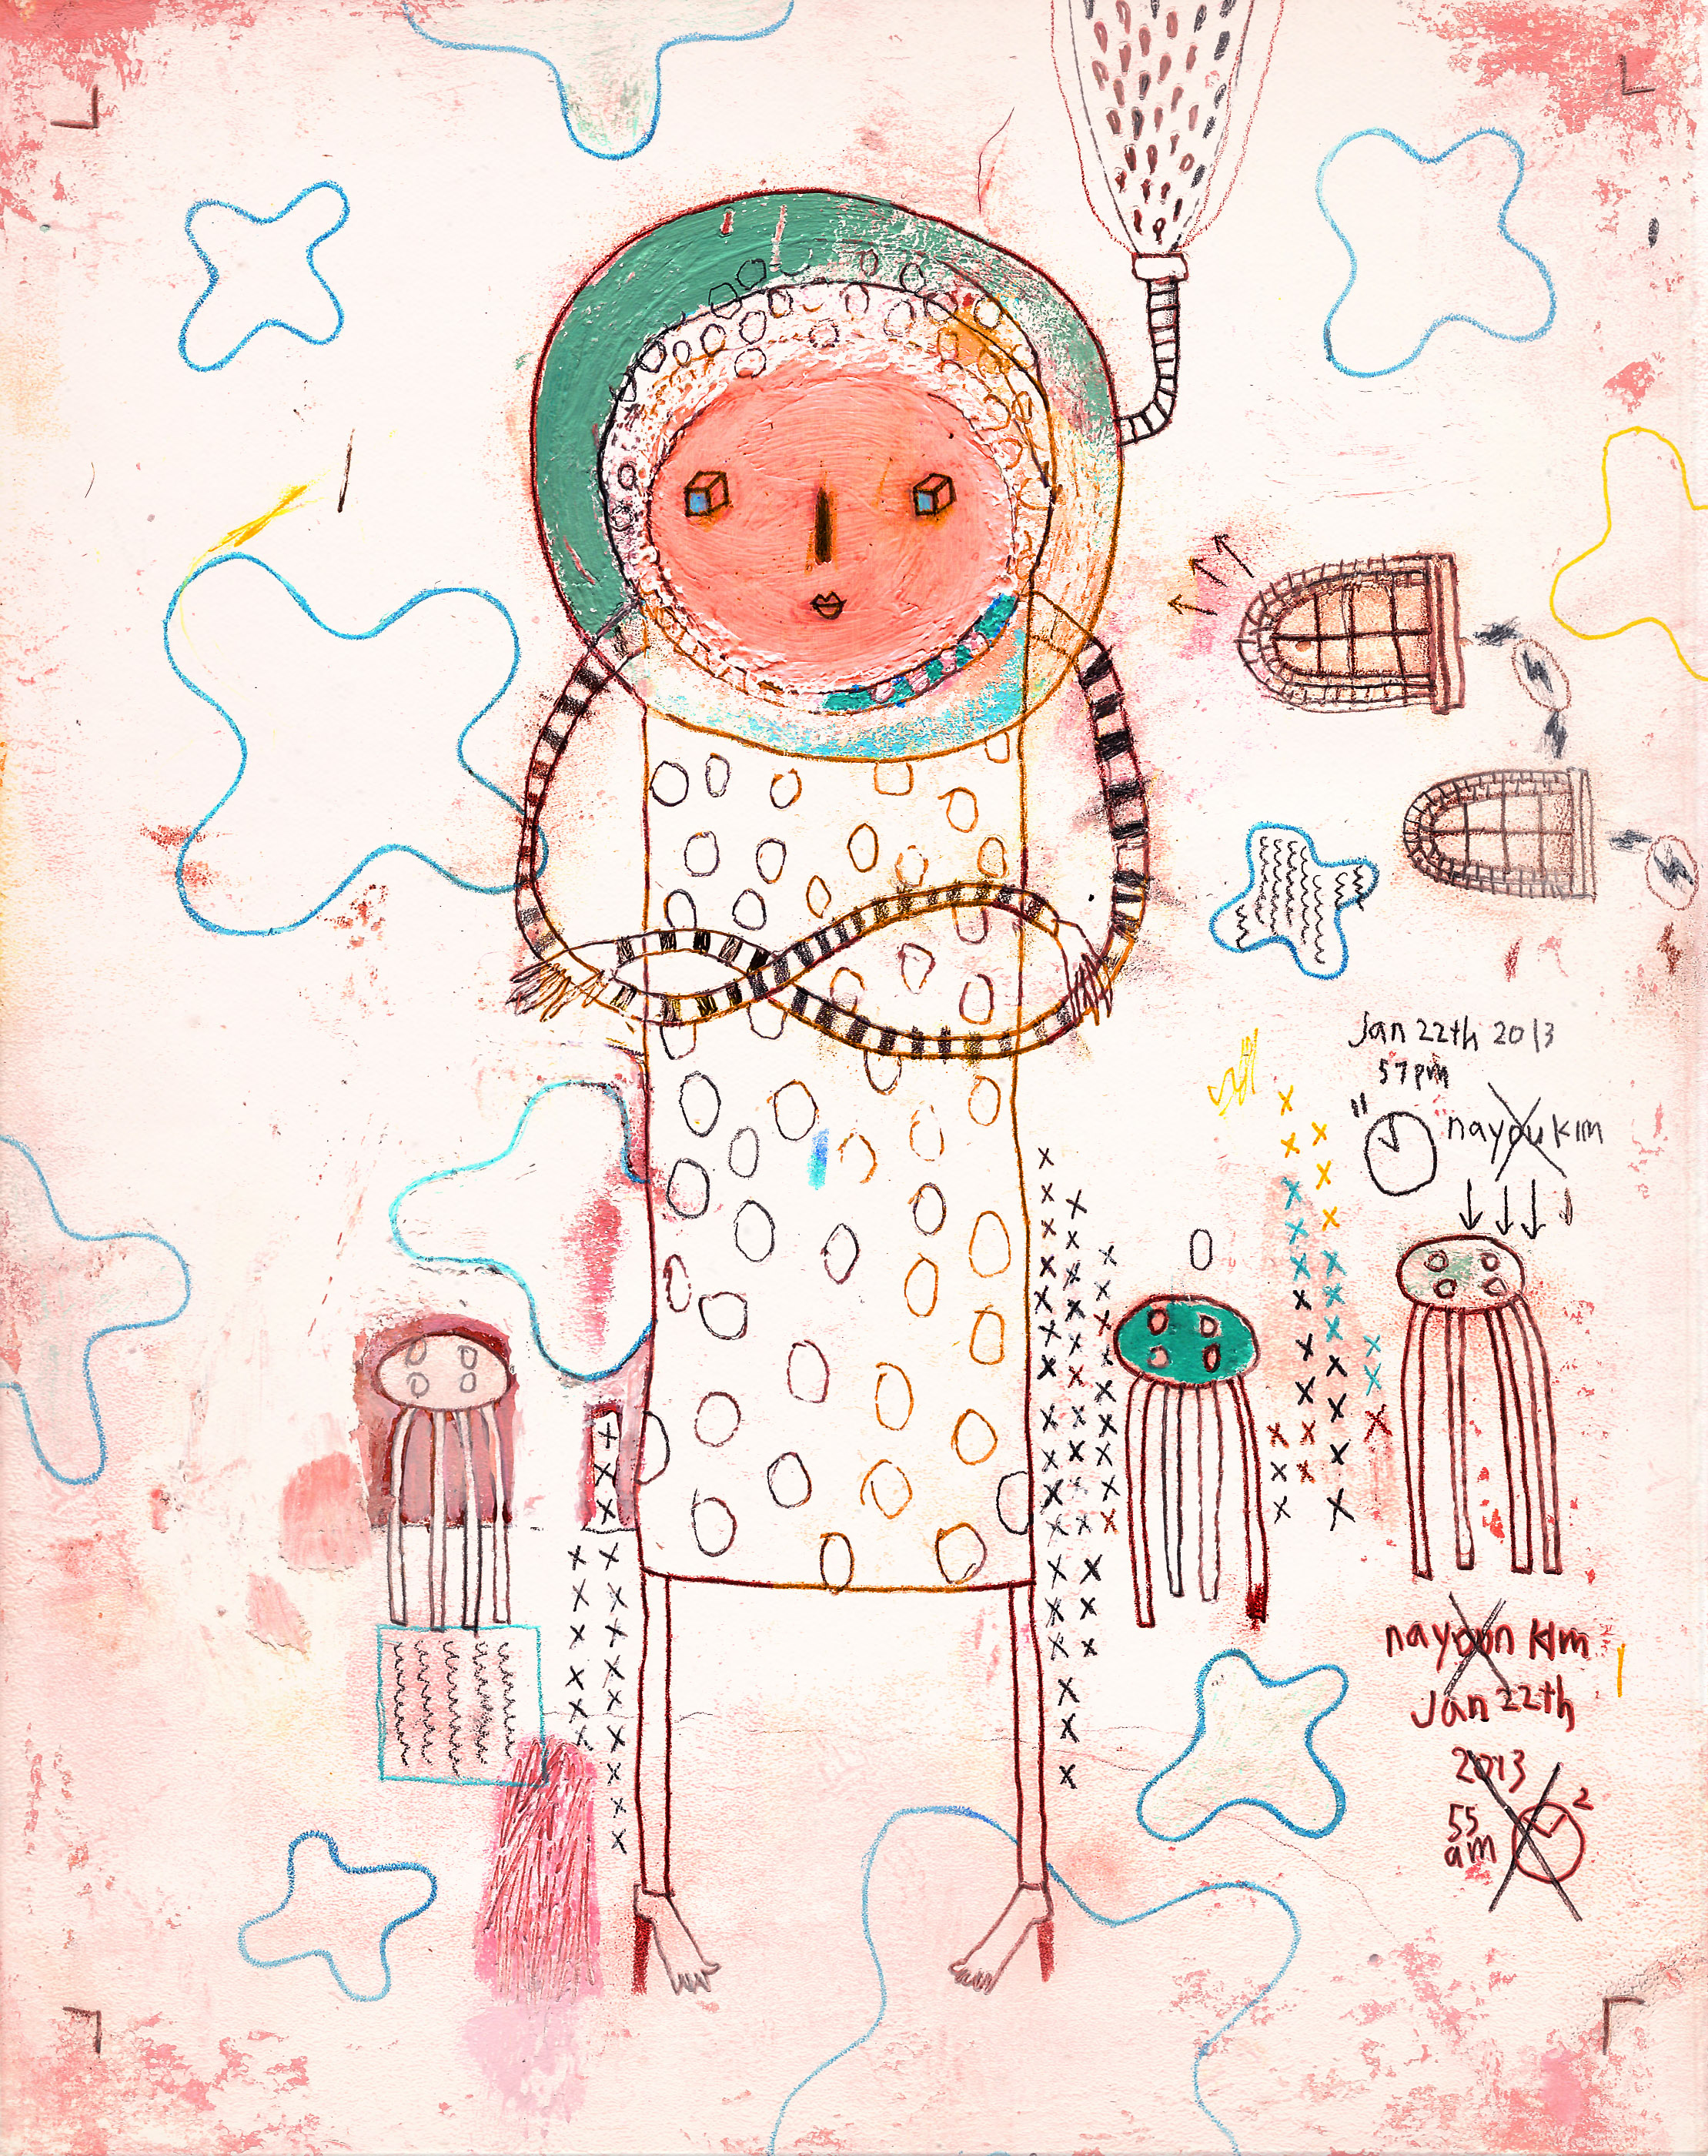 Jan 22th 2013
57pm
" nayoukim
nayoun kim
Jan 22th
2013
55 2
am